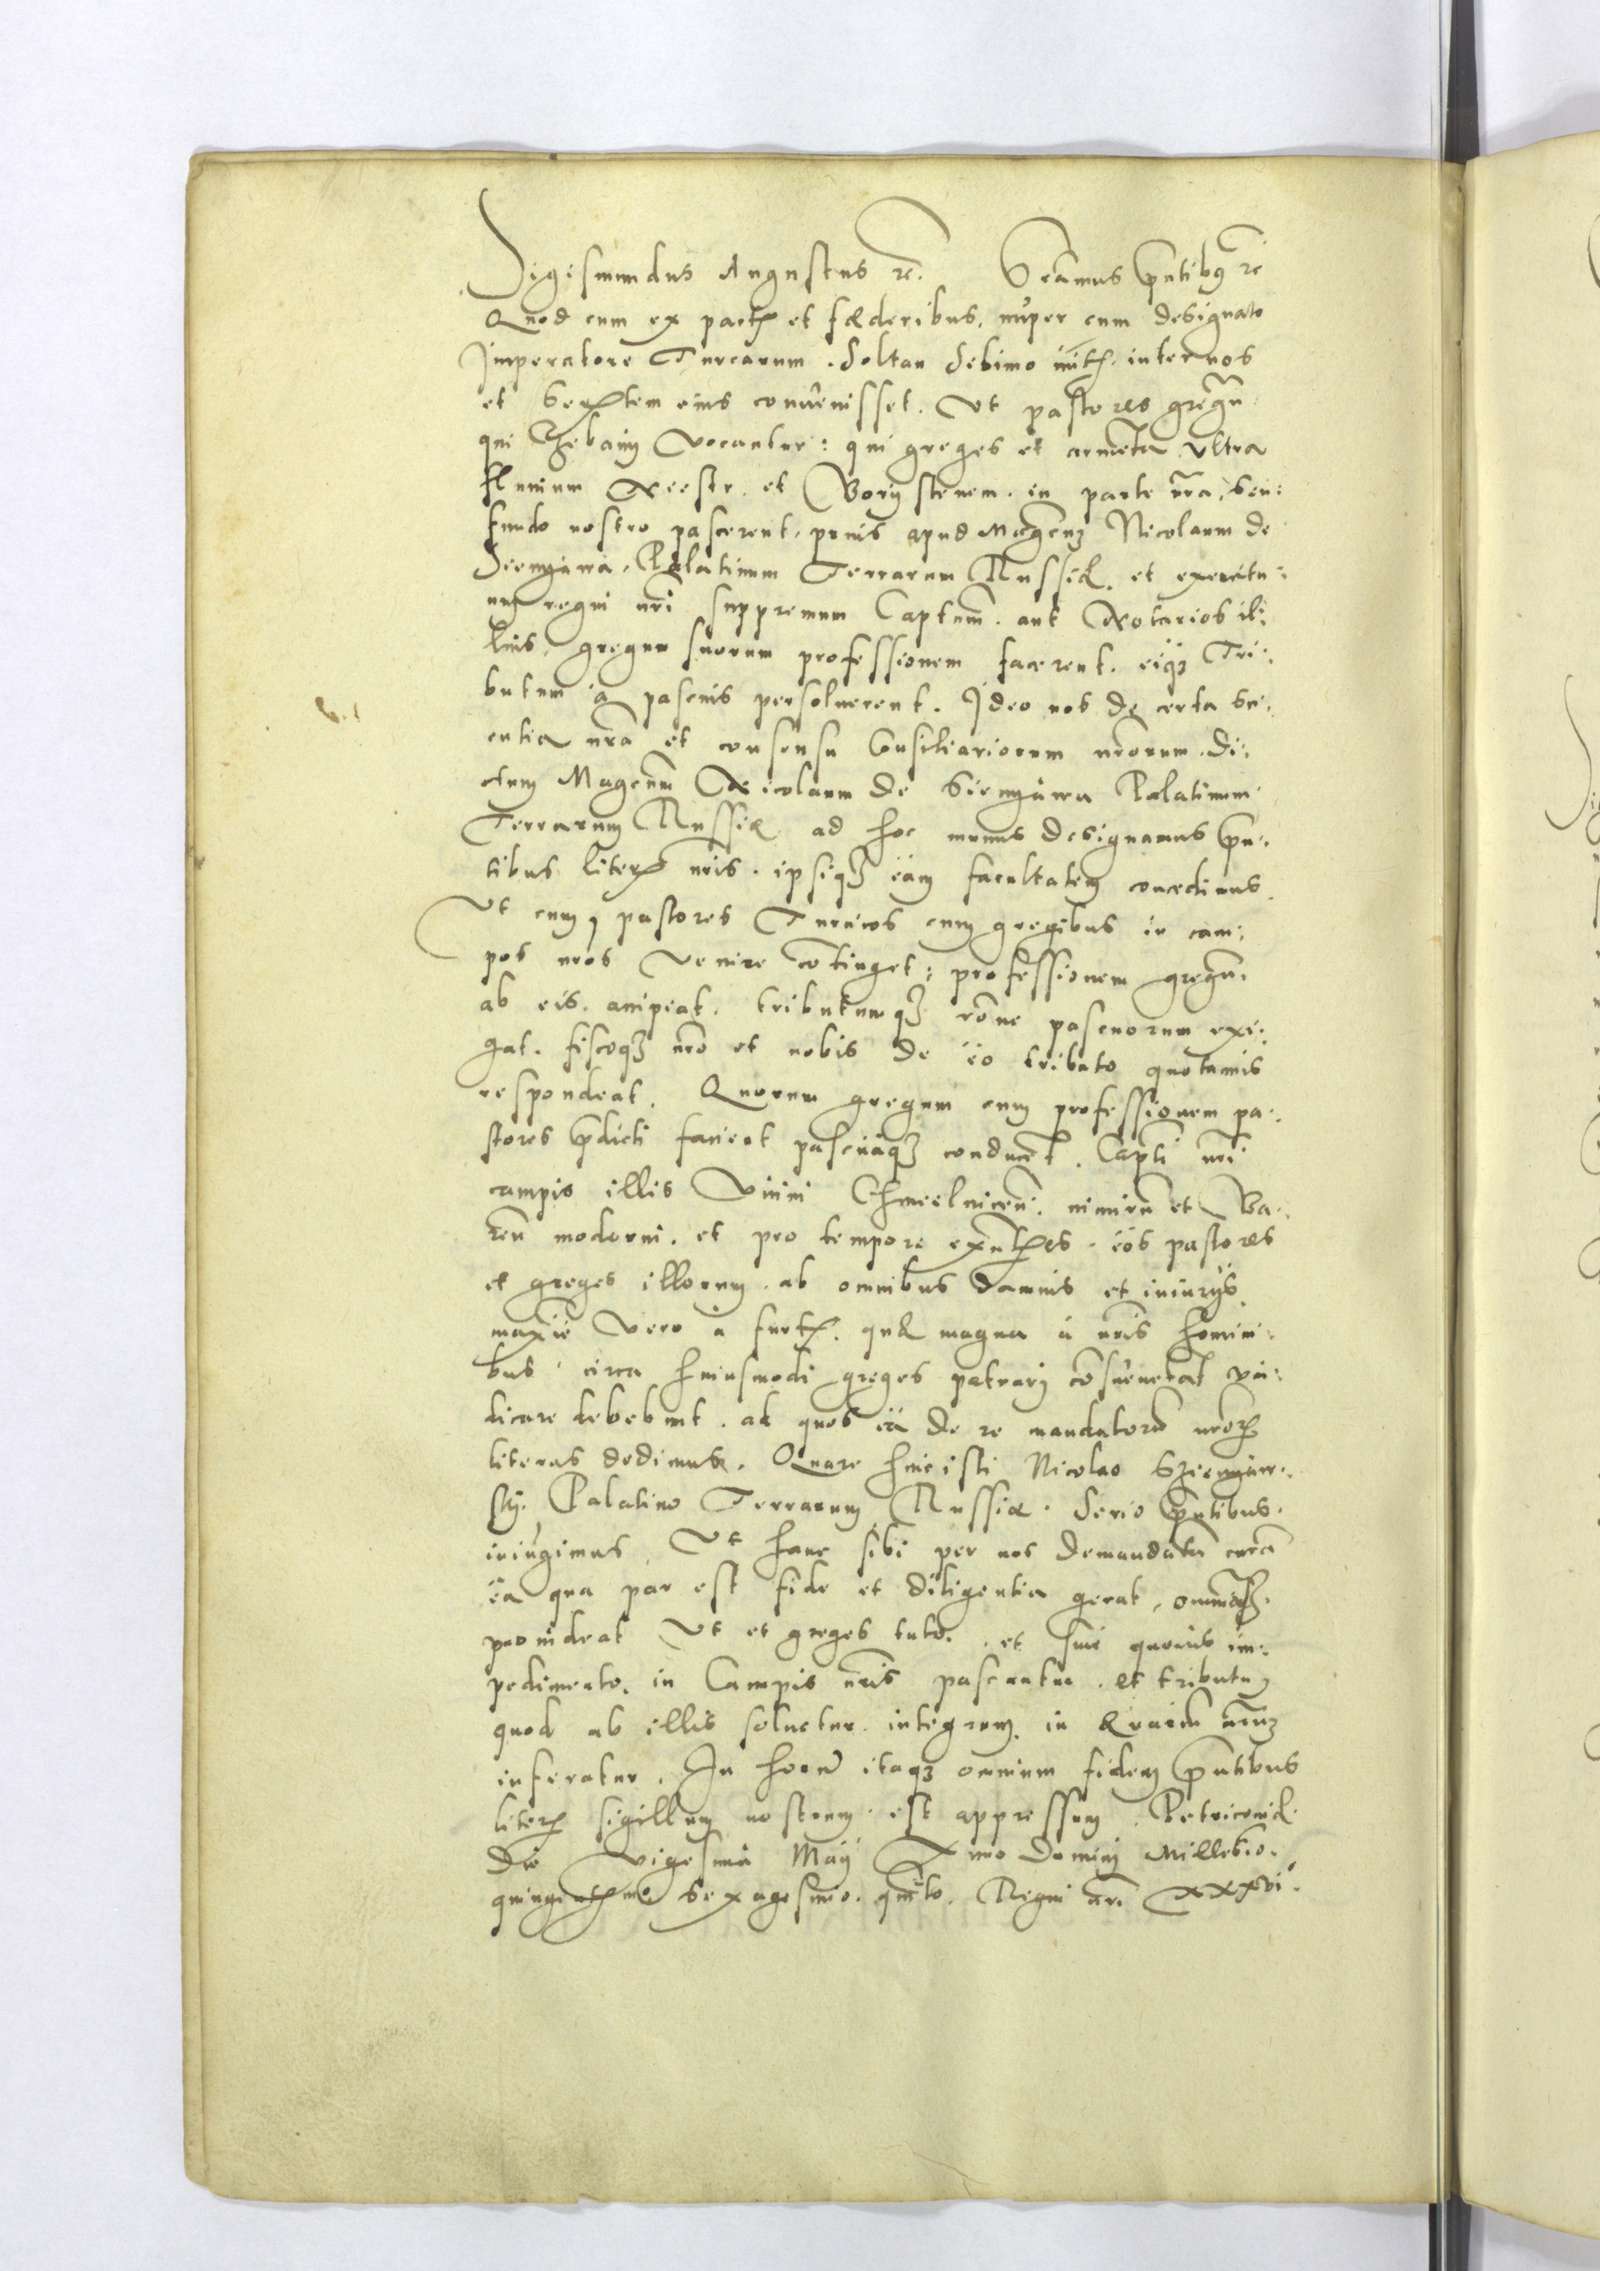 Sigismundus Augustus rc. Scamus pntibus rc
Quod cum ex pactis et fœderibus, nuper cum designato
Imperatore Turcarum. Soltan Selimo initis. inter nos
et Sertem eius convenisset. Ut pastores gregu
qui vocantur: qui greges et armeta ultra
flumum Neestr. et Borystenem. in parte nra, seu:
fundo nostro pascerent, prius apud Magcum Nicolaum de
Sienyawa, Palatinum Terrarum Russiæ. et exercitu:
um regni nri suppremum Captneum. aut Notarios il:
lius, gregum suorum professionem facerent. eiqз Tri:
butum à pascuis persoluerent. Ideo nos de certa sci:
entia nra et consensu Consiliariorum nrorum. Di:
ctum Magcum Nicolaum de Sienyawa Palatinum
Terrarum Russiæ ad hoc munus designamus pn:
tibus literis nris. ipsiqз eam facultatem concedimus.
Ut cum pastores Turcicos cum gregibus in cam:
pos nros venire cotinget: professionem gregu.
ab eis. accipiat. tributumqз roue pascuorum exi:
gat. fiscoqз nro et nobis de eo tributo quotannis
respondeat. Quorum gregum cum professionem pa:
stores pdicti facient pascuaqз conducet. Captī nrī
campis illis vicini Chmielnicen. nimiru et Ba:
ren moderni. et pro tempore exntes. eos pastores
et greges illorum. ab omnibus damnis et iniurijs
maxie vero à furtis. quæ magna à nris homini:
bus circa huiusmodi greges patrari cosueuerat vin:
dicare debebunt. ad quos ea de re mandatoru nror
literas dedimus. Quare huic isti Nicolao Szieniaw:
skj. Palatino Terrarum Russiæ. Serio pntibus.
iniugimus, Ut hanc sibi per nos demandata cura
ea qua par est fide et diligentia gerat, omniaqз.
prouideat Ut et greges tuto. et sine quouis im:
pedimento. in Campis nris pascantur. et tributum
quod ab illis soluetur. integrum. in æraiu nrum
inferatur. In horu itaqз omnium fidem pntibus
literis sigillum nostrum est appressum. Petricouiæ
die vigesima Maij Anno Domini Millesio.
quingentesimo. Sexagesimo. quito. Regni nri xxxvi.